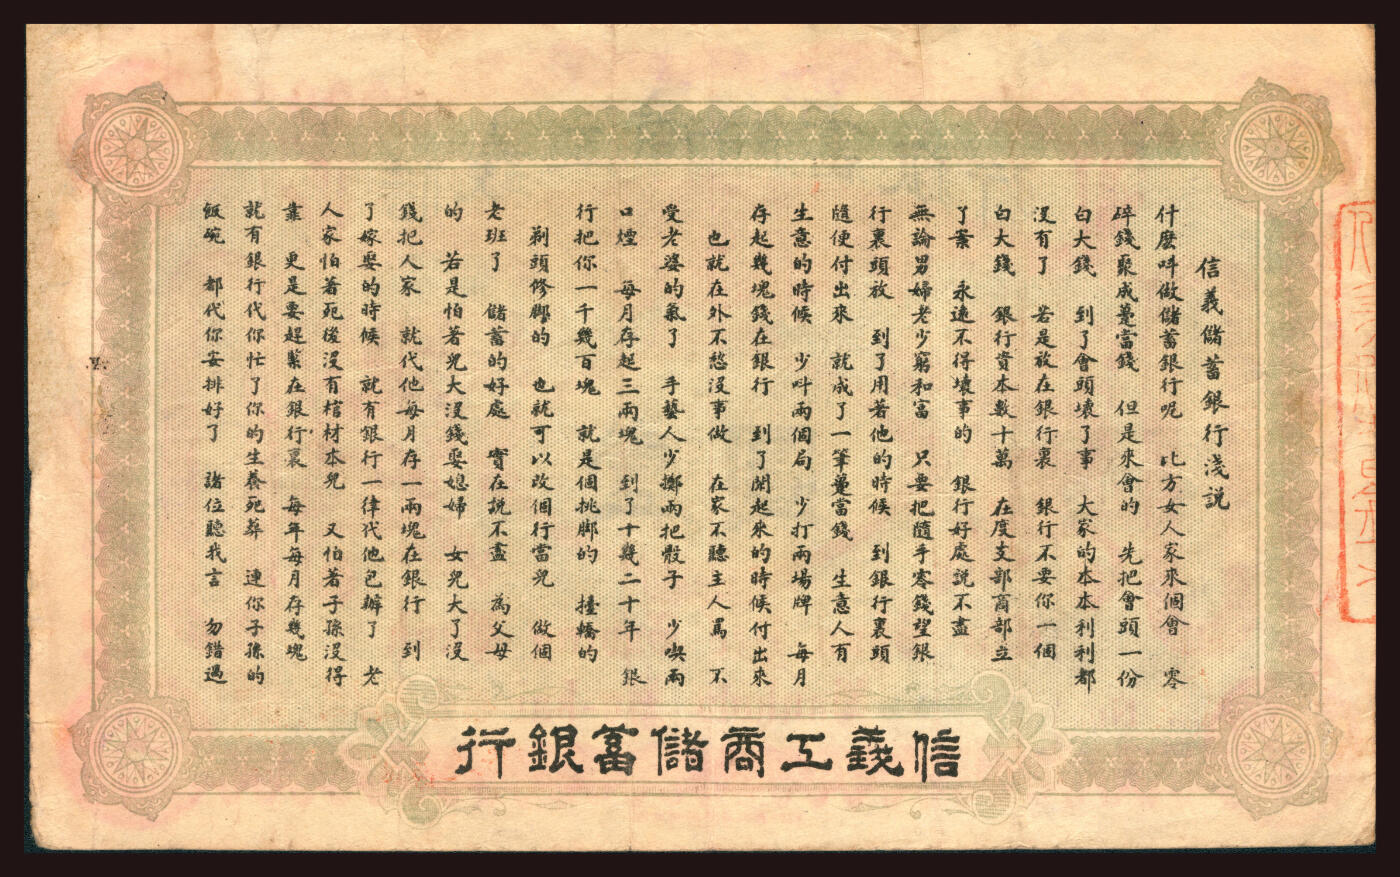 信義儲蓄銀行淺説
什麼呌做儲蓄銀行呢 比方女人家來個會 零
碎錢聚成躉當錢 但是來會的 先把會頭一份
白大錢 到了會頭壞了事 大家的本本利利都
沒有了 若是放在銀行裏 銀行不要你一個
白大錢 銀行資本數十萬 在度支部商部立
了案 永遠不得壞事的 銀行好處說不盡
無論男婦老少窮和富 只要把隨手零錢望銀
行裏頭放 到了用著他的時候 到銀行裏頭
隨便付出來 就成了一筆躉當錢 生意人有
生意的時候 少呌兩個局 少打兩場牌 每月
存起幾塊錢在銀行 到了閑起來的時候付出來
也就在外不愁沒事做 在家不聽主人罵 不
受老婆的氣了 手藝人少擲兩把骰子 少喫兩
口煙 每月存起三兩塊 到了十幾二十年 銀
行把你一千幾百塊 就是個挑脚的 擡轎的
剃頭修脚的 也就可以改個行當兒 做個
老班了 儲蓄的好處 實在説不盡 為父母
的 若是怕著兒大沒錢娶媳婦 女兒大了沒
錢把人家 就代他每月存一兩塊在銀行 到
了嫁娶的時候 就有銀行一律代他包辦了 老
人家怕著死後沒有棺材本兒 又怕著子孫沒得
靠 更是要趕緊在銀行裏 每年每月存幾塊
就有銀行代你忙了你的生養死葬 連你子孫的
飯碗 都代你安排好了 諸位聽我言 勿錯過
信義工商儲蓄銀行